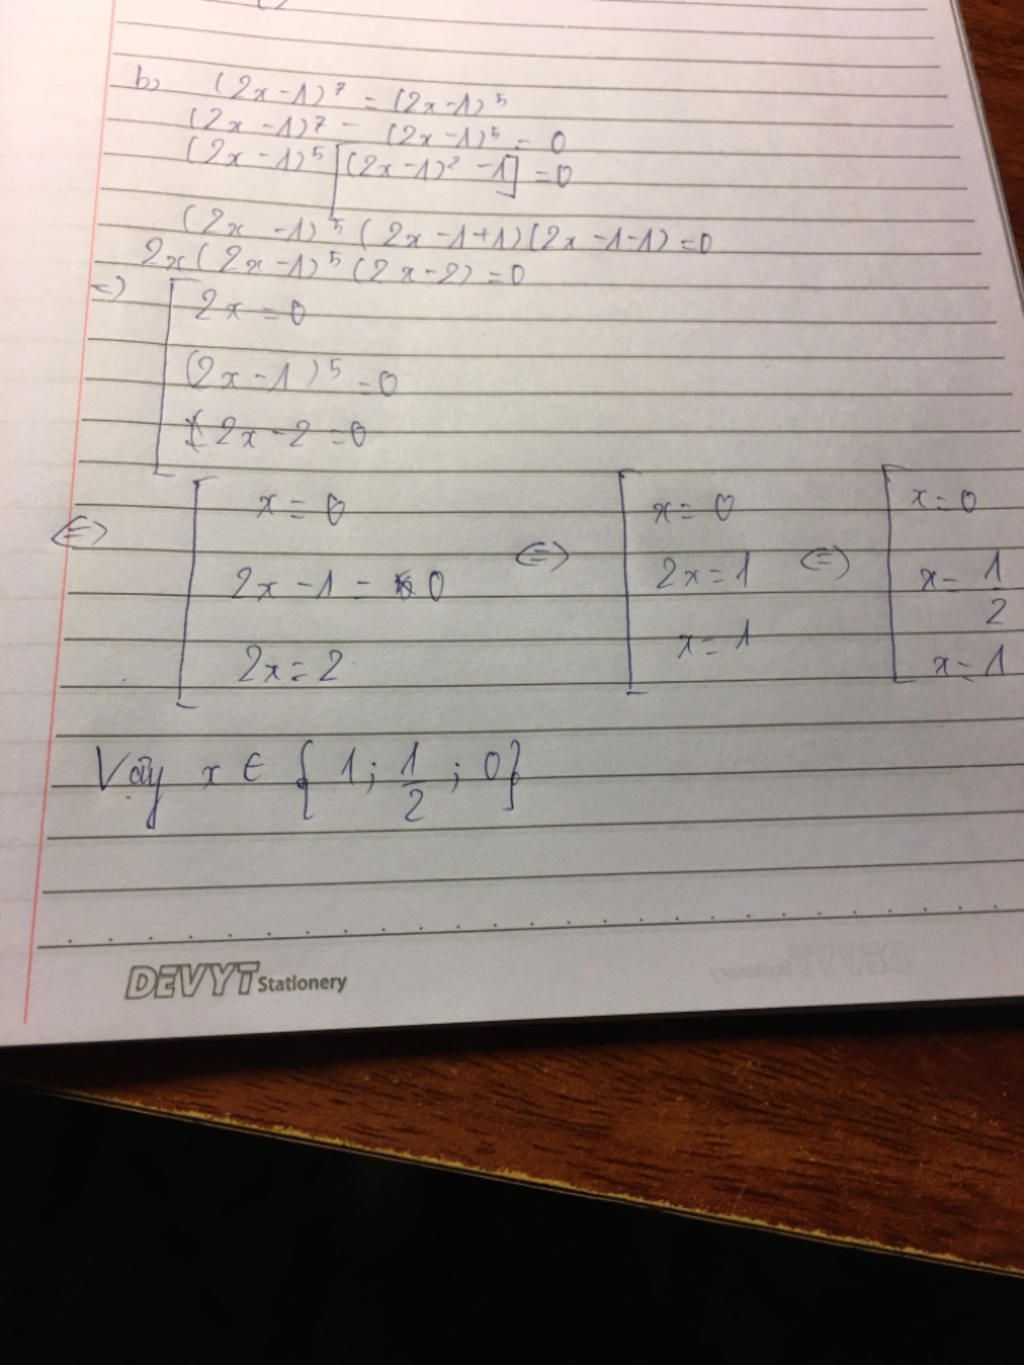 b) (2x-1)⁷ = (2x-1)⁵
(2x-1)⁷ - (2x-1)⁵ = 0
(2x-1)⁵ [(2x-1)² -1] = 0
(2x -1)⁵ (2x-1+1)(2x-1-1) = 0
2x(2x-1)⁵ (2x-2) = 0
=) [ 2x = 0
(2x-1)⁵ = 0
2x-2 = 0
(=) [ x = 0 (=) [ x = 0 (=) [ x = 0
2x-1 = 0 2x = 1 x = 1/2
2x = 2 x = 1 x = 1
Vậy x ∈ {1; 1/2; 0}
DEVYT Stationery